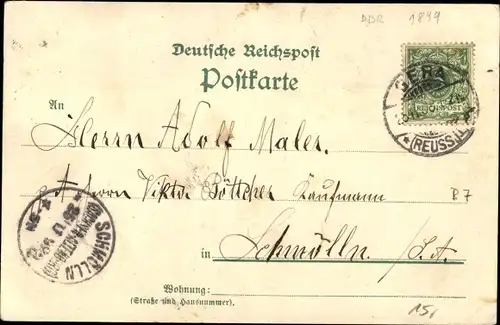 DDR 1899
Deutsche Reichspost
Postkarte
An
GERA
REICHSPOST
* (REUSS)
Herrn Adolf Maler.
Herrn Viktor Böttcher Kaufmann
B7
in Schmölln S.A.
SCHMÖLLN
Wohnung:
(Straße und Hausnummer).
15,